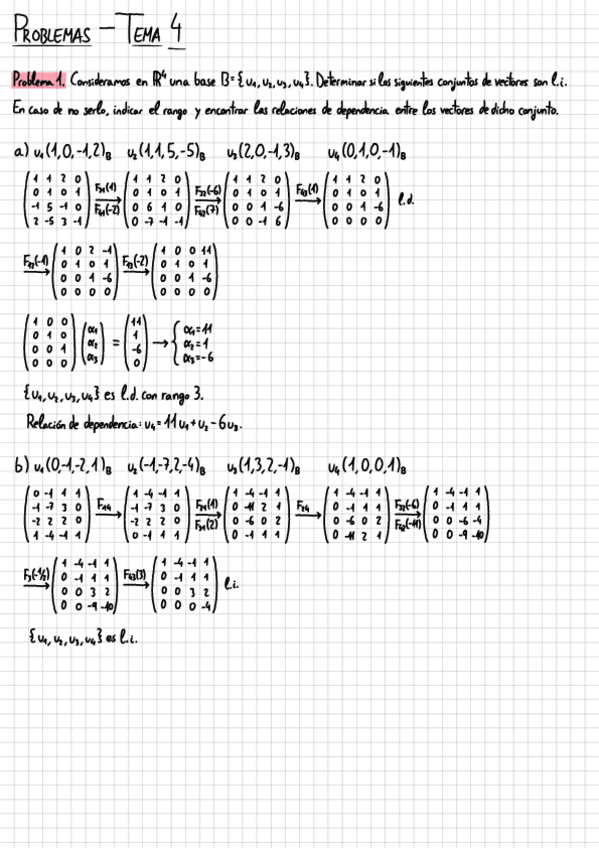 PROBLEMAS – TEMA 4
Problema 1. Consideramos en ℝ⁴ una base B={u₁,u₂,u₃,u₄}. Determinar si los siguientes conjuntos de vectores son l.i.
En caso de no serlo, indicar el rango y encontrar las relaciones de dependencia entre los vectores de dicho conjunto.
a) u₁(1,0,-1,2)B u₂(1,1,5,-5)B u₃(2,0,-1,3)B u₄(0,1,0,-1)B
(1 1 2 0; 0 1 0 1; -1 5 -1 0; 2 -5 3 -1) F₃₁(1) F₄₁(-2) → (1 1 2 0; 0 1 0 1; 0 6 1 0; 0 -7 -1 -1) F₃₂(-6) F₄₂(7) → (1 1 2 0; 0 1 0 1; 0 0 1 -6; 0 0 -1 6) F₄₃(1) → (1 1 2 0; 0 1 0 1; 0 0 1 -6; 0 0 0 0) l.d.
F₁₂(-1) → (1 0 2 -1; 0 1 0 1; 0 0 1 -6; 0 0 0 0) F₁₃(-2) → (1 0 0 11; 0 1 0 1; 0 0 1 -6; 0 0 0 0)
(1 0 0; 0 1 0; 0 0 1; 0 0 0) (α₁; α₂; α₃) = (11; 1; -6; 0) → { α₁=11 α₂=1 α₃=-6
{u₁,u₂,u₃,u₄} es l.d. con rango 3.
Relación de dependencia: u₄=11u₁+u₂-6u₃.
b) u₁(0,-1,-2,1)B u₂(-1,-7,2,-4)B u₃(1,3,2,-1)B u₄(1,0,0,1)B
(0 -1 1 1; -1 -7 3 0; -2 2 2 0; 1 -4 -1 1) F₁₄ → (1 -4 -1 1; -1 -7 3 0; -2 2 2 0; 0 -1 1 1) F₂₁(1) F₃₁(2) → (1 -4 -1 1; 0 -11 2 1; 0 -6 0 2; 0 -1 1 1) F₂₄ → (1 -4 -1 1; 0 -1 1 1; 0 -6 0 2; 0 -11 2 1) F₃₂(-6) F₄₂(-11) → (1 -4 -1 1; 0 -1 1 1; 0 0 -6 -4; 0 0 -9 -10)
F₃(-½) → (1 -4 -1 1; 0 -1 1 1; 0 0 3 2; 0 0 -9 -10) F₄₃(3) → (1 -4 -1 1; 0 -1 1 1; 0 0 3 2; 0 0 0 -4) l.i.
{u₁,u₂,u₃,u₄} es l.i.